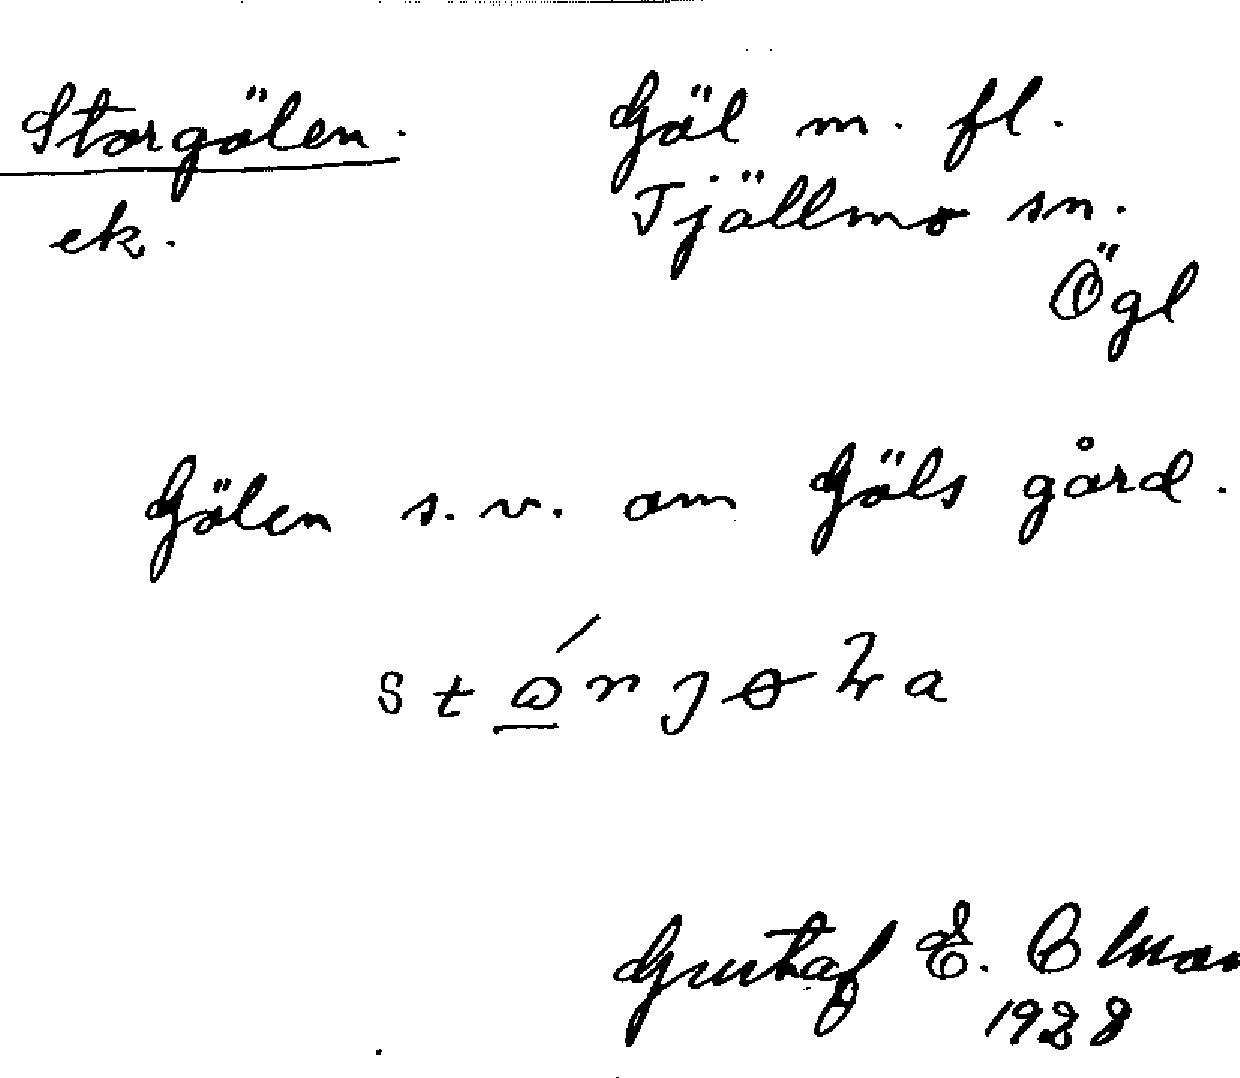 Storgölen. Göl m. fl.
ek. Tjällmo sn.
Ögl
Gölen s.v. om Göls gård.
Gustaf E.
1928